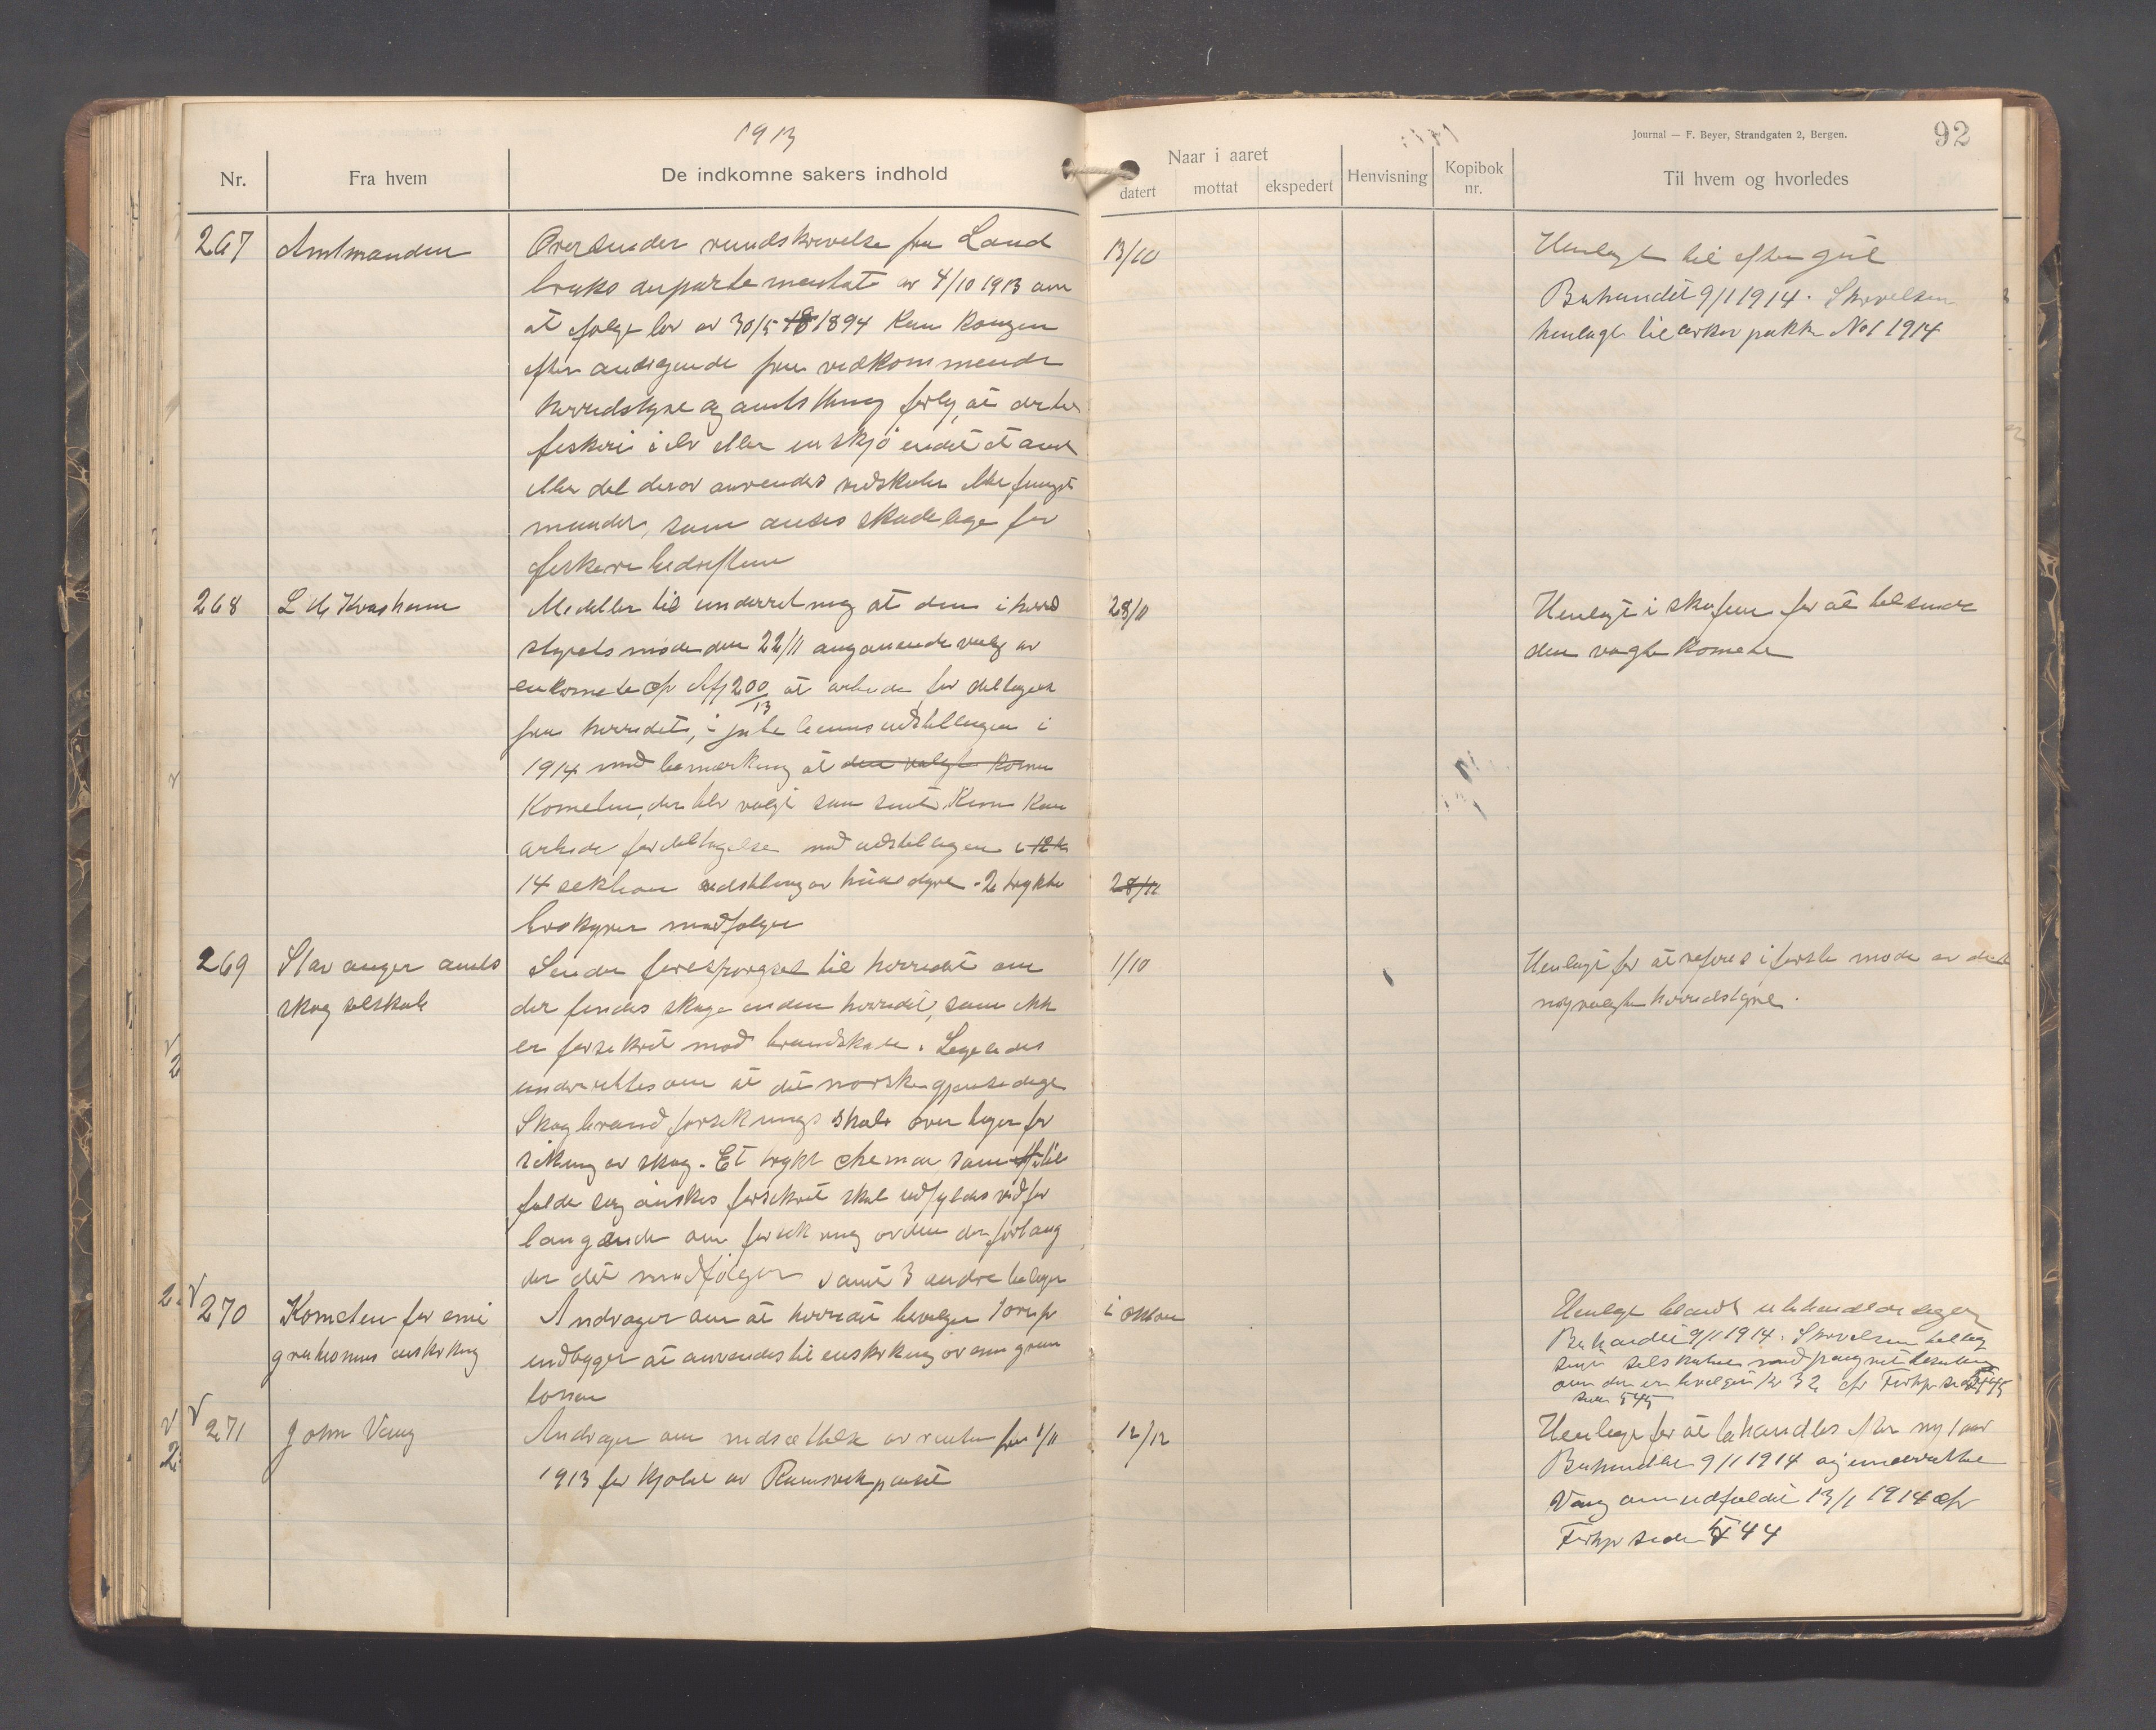 1913
Journal — F. Beyer, Strandgaten 2, Bergen.
92
Nr.
Fra hvem
De indkomne sakers indhold
Naar i aaret
datert
mottat
ekspedert
Henvisning
Kopibok nr.
Til hvem og hvorledes
267
Amtmanden
Oversender rundskrivelse fra Land
bruks departementet av 4/10 1913 om
at ifølge lov av 30/5 1894 kan kongen
efter andragende fra vedkommende
herredstyre og amtsthing forby, at der ved
fiskeri i elv eller innskjø indet et amt
eller del derav anvendes redskaber eller fangst
maader, som ansees skadelige for
fiskeribedriften
13/10
Henlagt til efter jul
Behandlet 9/1 1914. Skrivelsen
henlagt til arkiv pakke No 1 1914
268
L M Kvashem
Meddeler til underretning at den i herred
styrets møde den 22/11 angaaende valg av
en komite cfr 200/13 at arbeide for deltagelse
fra herredet, i jubileumsudstillingen i
1914 med bemerkning at den valgte kome
Kometen, der blev valgt som sent kun kan
arbeide for deltagelse ved udstillingen i 12te
14 sektion udstilling av husdyr. 2 trykte
broskyrer medfølger
28/11
28/11
Henlagt i skuffen for at tilsende
den valgte komete
269
Stavanger amts
skogselskab
Sender forespørgsel til herredet om
der findes skoge inden herredet, som ikke
er forsekret mod brandskade. Legeledes
underrettes om at det norske gjensedige
Skogbrandforsekrings skab overtager for
sekring av skog. Et trykt chema som til
felde seg ønskes forsekret skal udfyldes ved for
langende om forsekring orden der forlang
der det medfølger samt 3 andre belager
1/10
Henlagt for at referes i første møde av dette
nyvalgte herredstyre.
270
Kometen for emi
grationens enskrking
Andrager om at herredet bevelger 1 øre pr
indbygger at anvendes til enskrkning av emigran
tionen
i oktbr
Henlagt blandt ubehandlede sager
Behandlet 9/1 1914. Skrivelsen tilbag
sendt selskabet med paategnet beslutning
om der er bevelget kr 32 cfr Forhpr side 545
side 545
271
John Vaag
Andrager om nedsættelse av renten fra 1/11
1913 for kjøbet av Ramsvikpladset
12/12
Henlagt for at behandles efter nytaar
Behandlet 9/1 1914 og underrettet
Vaag om udfaldet 13/1 1914 cfr
Forhpr side 544